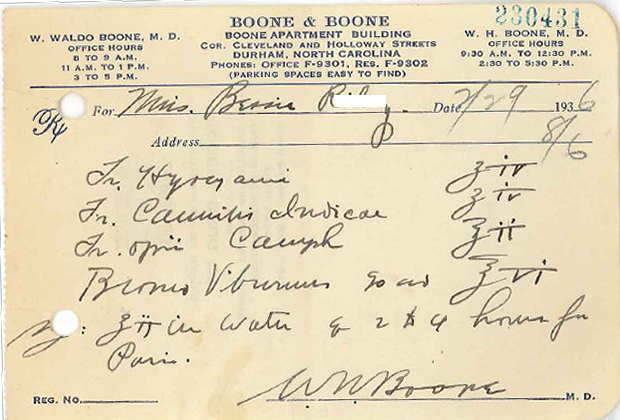 230431
BOONE & BOONE
BOONE APARTMENT BUILDING
COR. CLEVELAND AND HOLLOWAY STREETS
DURHAM, NORTH CAROLINA
PHONES: OFFICE F-9301, RES. F-9302
(PARKING SPACES EASY TO FIND)
W. WALDO BOONE, M. D.
OFFICE HOURS
8 TO 9 A.M.
11 A.M. TO 1 P.M.
3 TO 5 P.M.
W. H. BOONE, M. D.
OFFICE HOURS
9:30 A.M. TO 12:30 P.M.
2:30 TO 5:30 P.M.
Rx For Mrs. Bessie Ril y. Date 2/29 1936
Address 8/6
Tr. Hyoscyami ʒ iv
Tr. Cannibis Indicae ʒ iv
Tr. opii Camph ʒ ii
Bromo Viburnus qs ad ʒ vi
Sig: ʒ ii in water q 2 to 4 hours for
Pain.
W W Boone M. D.
REG. NO.